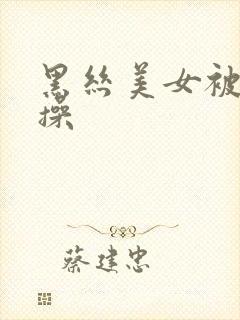 黑丝美女被
操
蔡建忠